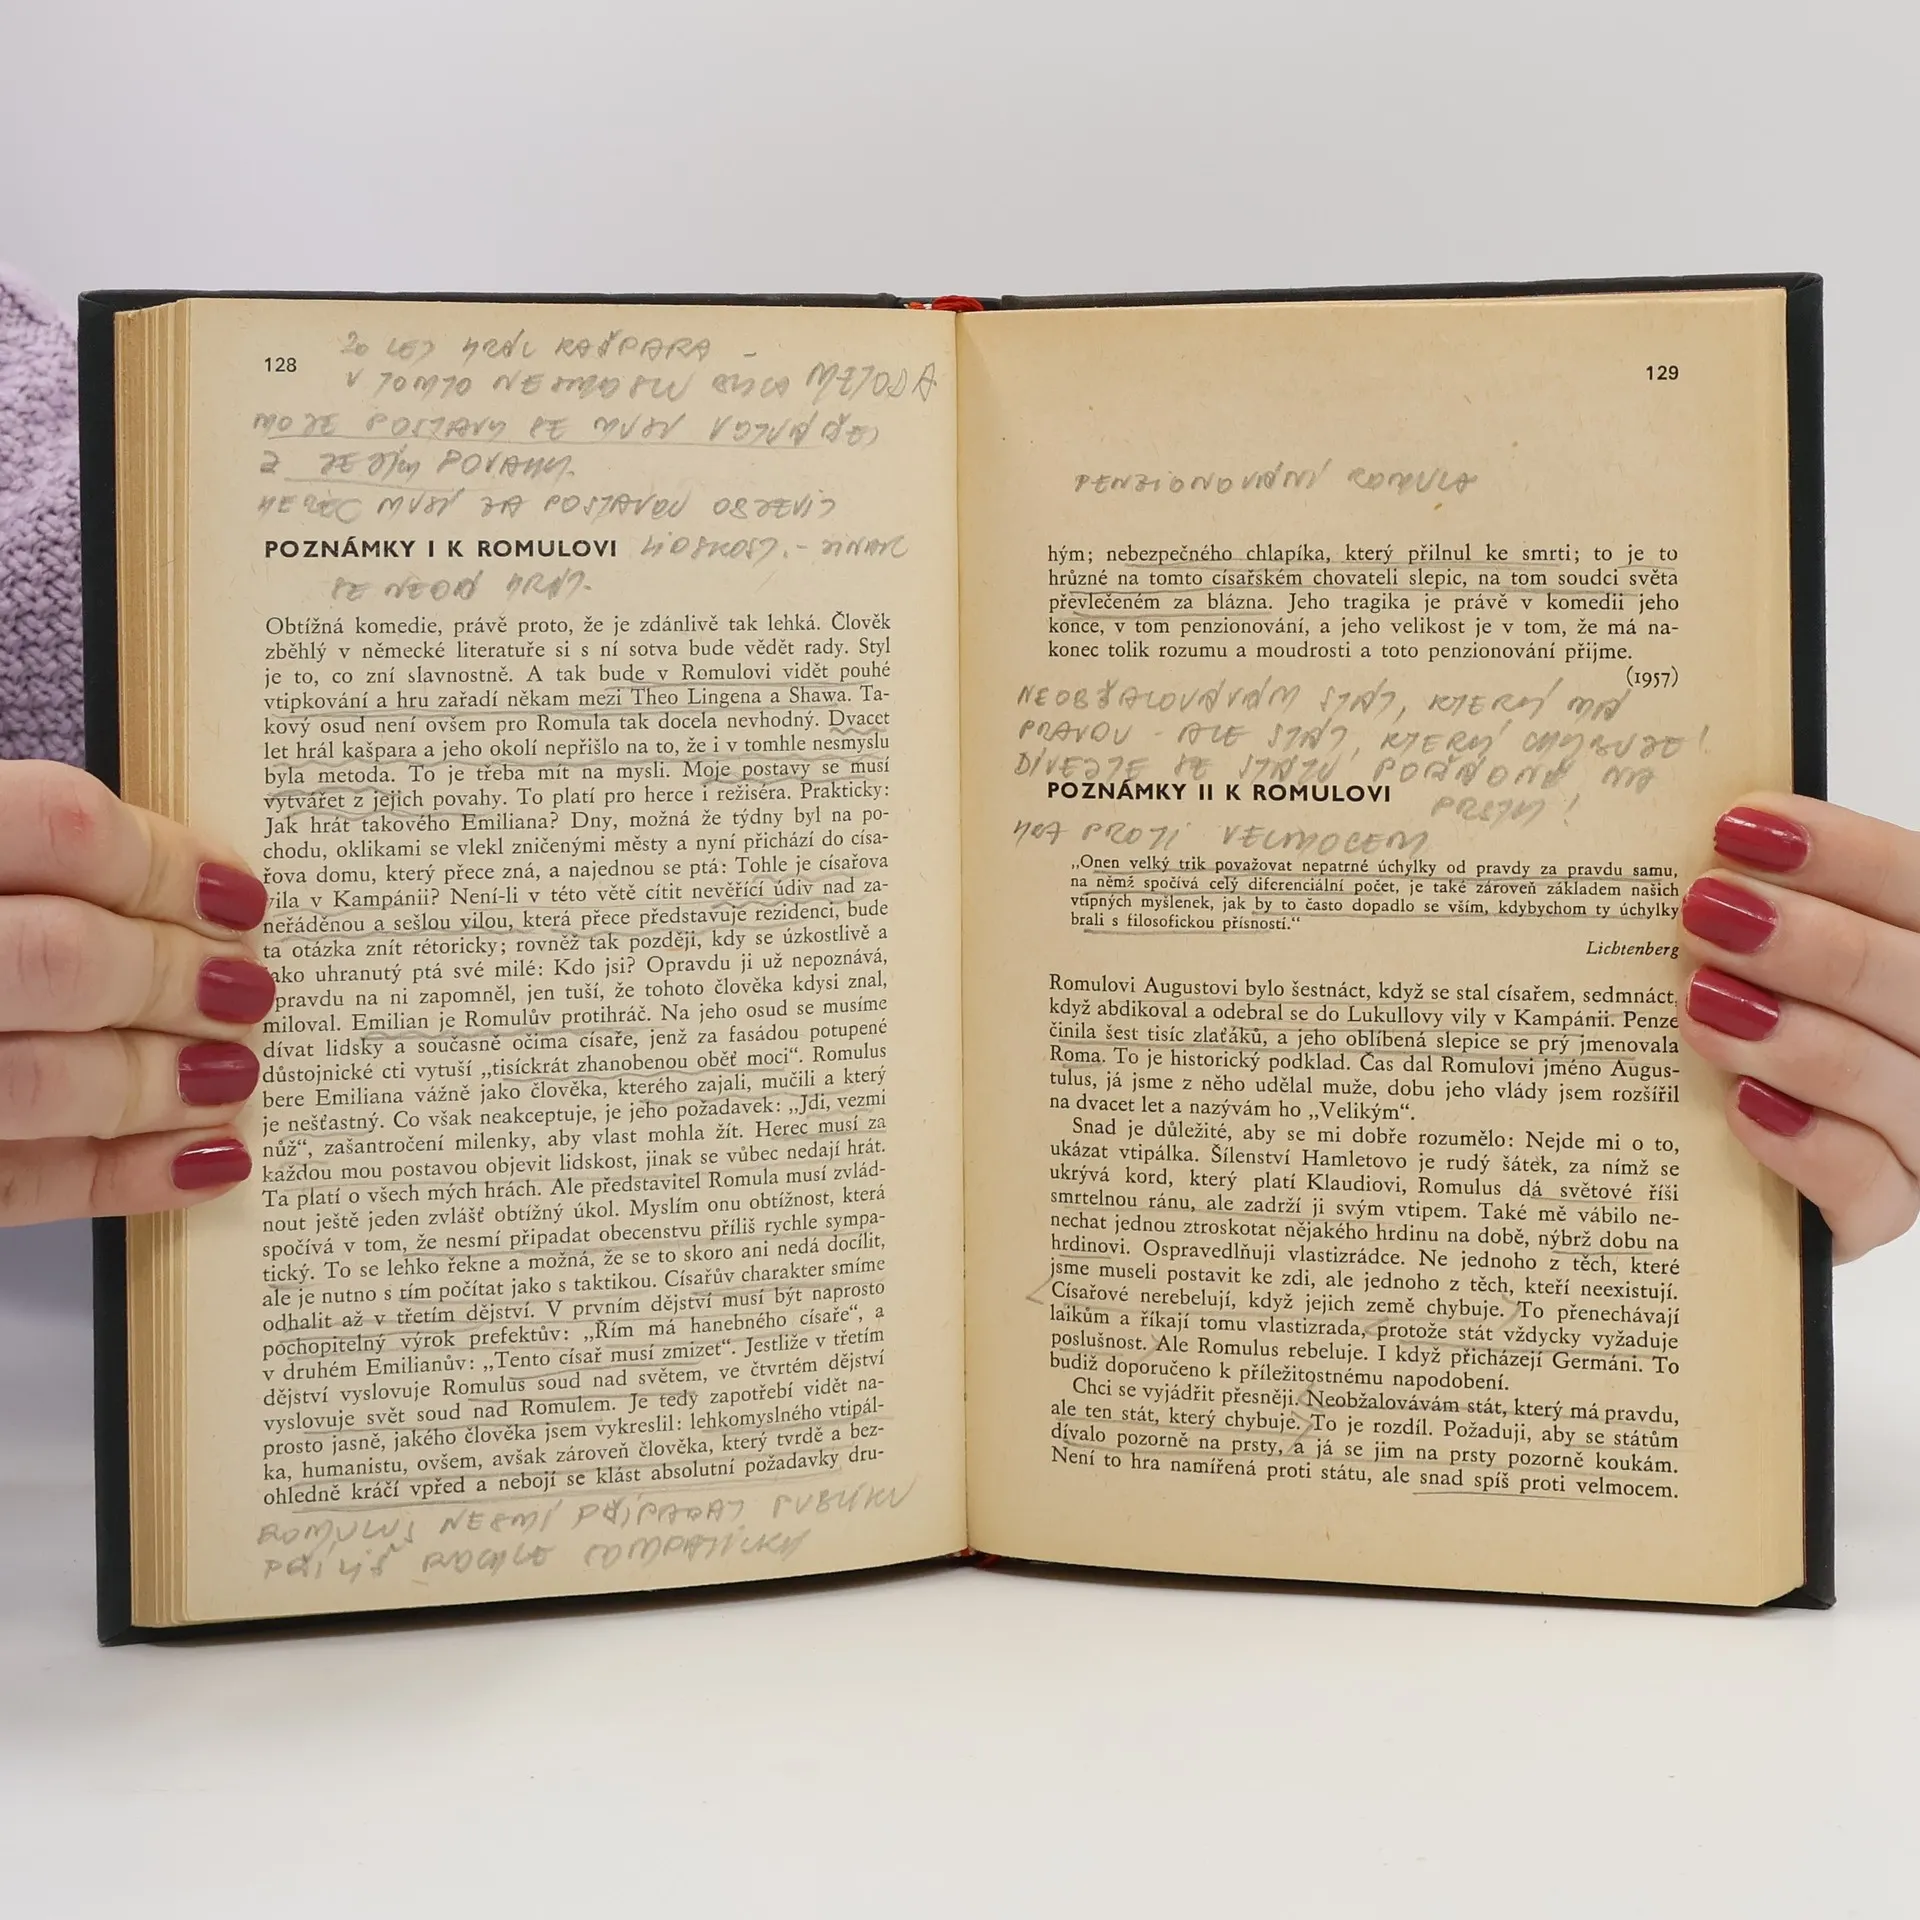 128
20 LET HRÁL KAŠPARA –
V TOMTO NESMYSLU BYLA METODA
MOJE POSTAVY SE MUSÍ VYTVÁŘET
Z JEJICH POVAHY.
HEREC MUSÍ ZA POSTAVOU OBJEVIT
POZNÁMKY I K ROMULOVI LIDSKOST. - JINAK
SE NEDÁ HRÁT.
Obtížná komedie, právě proto, že je zdánlivě tak lehká. Člověk
zběhlý v německé literatuře si s ní sotva bude vědět rady. Styl
je to, co zní slavnostně. A tak bude v Romulovi vidět pouhé
vtipkování a hru zařadí někam mezi Theo Lingena a Shawa. Ta-
kový osud není ovšem pro Romula tak docela nevhodný. Dvacet
let hrál kašpara a jeho okolí nepřišlo na to, že i v tomhle nesmyslu
byla metoda. To je třeba mít na mysli. Moje postavy se musí
vytvářet z jejich povahy. To platí pro herce i režiséra. Prakticky:
Jak hrát takového Emiliana? Dny, možná že týdny byl na po-
chodu, oklikami se vlekl zničenými městy a nyní přichází do císa-
řova domu, který přece zná, a najednou se ptá: Tohle je císařova
vila v Kampánii? Není-li v této větě cítit nevěřící údiv nad za-
neřáděnou a sešlou vilou, která přece představuje rezidenci, bude
ta otázka znít rétoricky; rovněž tak později, kdy se úzkostlivě a
jako uhranutý ptá své milé: Kdo jsi? Opravdu ji už nepoznává,
opravdu na ni zapomněl, jen tuší, že tohoto člověka kdysi znal,
miloval. Emilian je Romulův protihráč. Na jeho osud se musíme
dívat lidsky a současně očima císaře, jenž za fasádou potupené
důstojnické cti vytuší „tisíckrát zhanobenou oběť moci“. Romulus
bere Emiliana vážně jako člověka, kterého zajali, mučili a který
je nešťastný. Co však neakceptuje, je jeho požadavek: „Jdi, vezmi
nůž“, zašantročení milenky, aby vlast mohla žít. Herec musí za
každou mou postavou objevit lidskost, jinak se vůbec nedají hrát.
Ta platí o všech mých hrách. Ale představitel Romula musí zvlád-
nout ještě jeden zvlášť obtížný úkol. Myslím onu obtížnost, která
spočívá v tom, že nesmí připadat obecenstvu příliš rychle sympa-
tický. To se lehko řekne a možná, že se to skoro ani nedá docílit,
ale je nutno s tím počítat jako s taktikou. Císařův charakter smíme
odhalit až v třetím dějství. V prvním dějství musí být naprosto
pochopitelný výrok prefektův: „Řím má hanebného císaře“, a
v druhém Emilianův: „Tento císař musí zmizet“. Jestliže v třetím
dějství vyslovuje Romulus soud nad světem, ve čtvrtém dějství
vyslovuje svět soud nad Romulem. Je tedy zapotřebí vidět na-
prosto jasně, jakého člověka jsem vykreslil: lehkomyslného vtipál-
ka, humanistu, ovšem, avšak zároveň člověka, který tvrdě a bez-
ohledně kráčí vpřed a nebojí se klást absolutní požadavky dru-
ROMULUS NESMÍ PŘIPADAT PUBLIKU
PŘÍLIŠ RYCHLE SYMPATICKY
129
PENZIONOVÁNÍ ROMULA
hým; nebezpečného chlapíka, který přilnul ke smrti; to je to
hrůzné na tomto císařském chovateli slepic, na tom soudci světa
převlečeném za blázna. Jeho tragika je právě v komedii jeho
konce, v tom penzionování, a jeho velikost je v tom, že má na-
konec tolik rozumu a moudrosti a toto penzionování přijme.
(1957)
NEOBŽALOVÁVÁM STÁT, KTERÝ MÁ
PRAVDU - ALE STÁT, KTERÝ CHYBUJE!
DÍVEJTE SE STÁTU POŘÁDNĚ NA
POZNÁMKY II K ROMULOVI PRSTY!
HRA PROTI VELMOCEM
„Onen velký trik považovat nepatrné úchylky od pravdy za pravdu samu,
na němž spočívá celý diferenciální počet, je také zároveň základem našich
vtipných myšlenek, jak by to často dopadlo se vším, kdybychom ty úchylky
brali s filosofickou přísností.“
Lichtenberg
Romulovi Augustovi bylo šestnáct, když se stal císařem, sedmnáct,
když abdikoval a odebral se do Lukullovy vily v Kampánii. Penze
činila šest tisíc zlaťáků, a jeho oblíbená slepice se prý jmenovala
Roma. To je historický podklad. Čas dal Romulovi jméno Augus-
tulus, já jsme z něho udělal muže, dobu jeho vlády jsem rozšířil
na dvacet let a nazývám ho „Velikým“.
Snad je důležité, aby se mi dobře rozumělo: Nejde mi o to,
ukázat vtipálka. Šílenství Hamletovo je rudý šátek, za nímž se
ukrývá kord, který platí Klaudiovi, Romulus dá světové říši
smrtelnou ránu, ale zadrží ji svým vtipem. Také mě vábilo ne-
nechat jednou ztroskotat nějakého hrdinu na době, nýbrž dobu na
hrdinovi. Ospravedlňuji vlastizrádce. Ne jednoho z těch, které
jsme museli postavit ke zdi, ale jednoho z těch, kteří neexistují.
Císařové nerebelují, když jejich země chybuje. To přenechávají
laikům a říkají tomu vlastizrada, protože stát vždycky vyžaduje
poslušnost. Ale Romulus rebeluje. I když přicházejí Germáni. To
budiž doporučeno k příležitostnému napodobení.
Chci se vyjádřit přesněji. Neobžalovávám stát, který má pravdu,
ale ten stát, který chybuje. To je rozdíl. Požaduji, aby se státům
dívalo pozorně na prsty, a já se jim na prsty pozorně koukám.
Není to hra namířená proti státu, ale snad spíš proti velmocem.